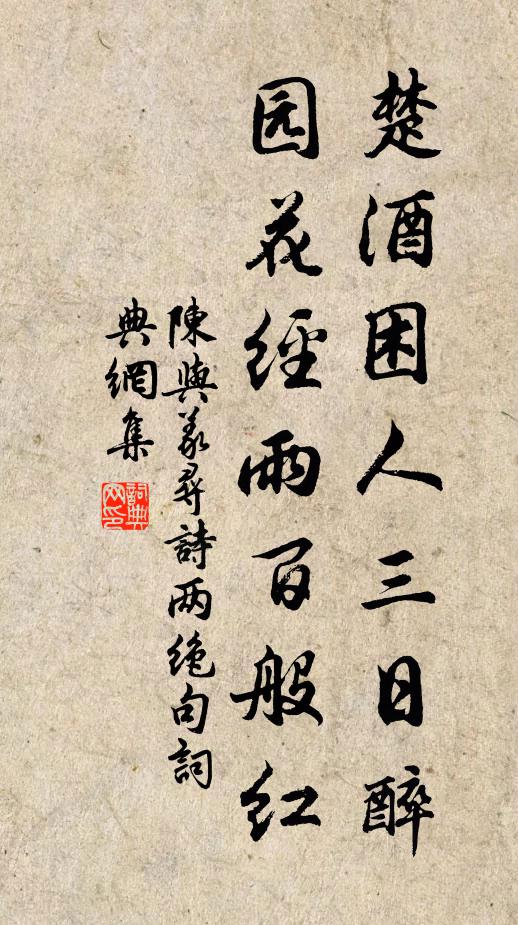 楚酒困人三日醉
园花经雨百般红
陳與義尋詩两绝句詞
典網集
詞典
网印